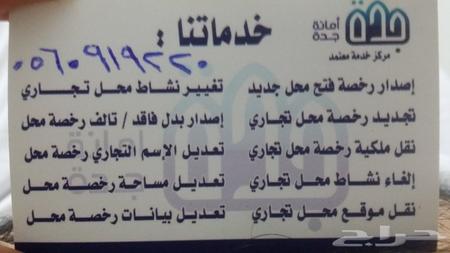 أمانة
جدة
مركز خدمة معتمد
خدماتنا :
٠٥٦٠٩١٩٢٢٠
إصدار رخصة فتح محل جديد
تجديد رخصة محل تجاري
نقل ملكية رخصة محل تجاري
إلغاء نشاط محل تجاري
نقل موقع محل تجاري
تغيير نشاط محل تجاري
إصدار بدل فاقد / تالف رخصة محل
تعديل الإسم التجاري رخصة محل
تعديل مساحة رخصة محل
تعديل بيانات رخصة محل
أمانة
جدة
حراج